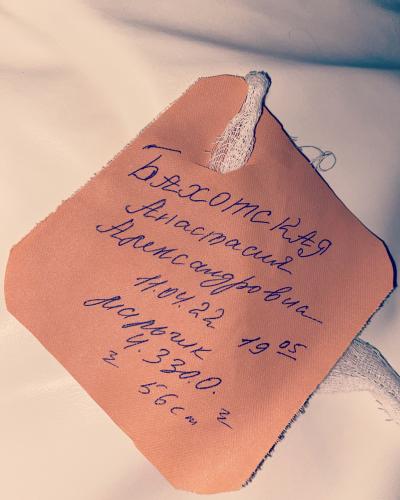 БАХОТСКАЯ
Анастасия
Александровна
11.04.22 19 05
мальчик
4.330.0.
56 см